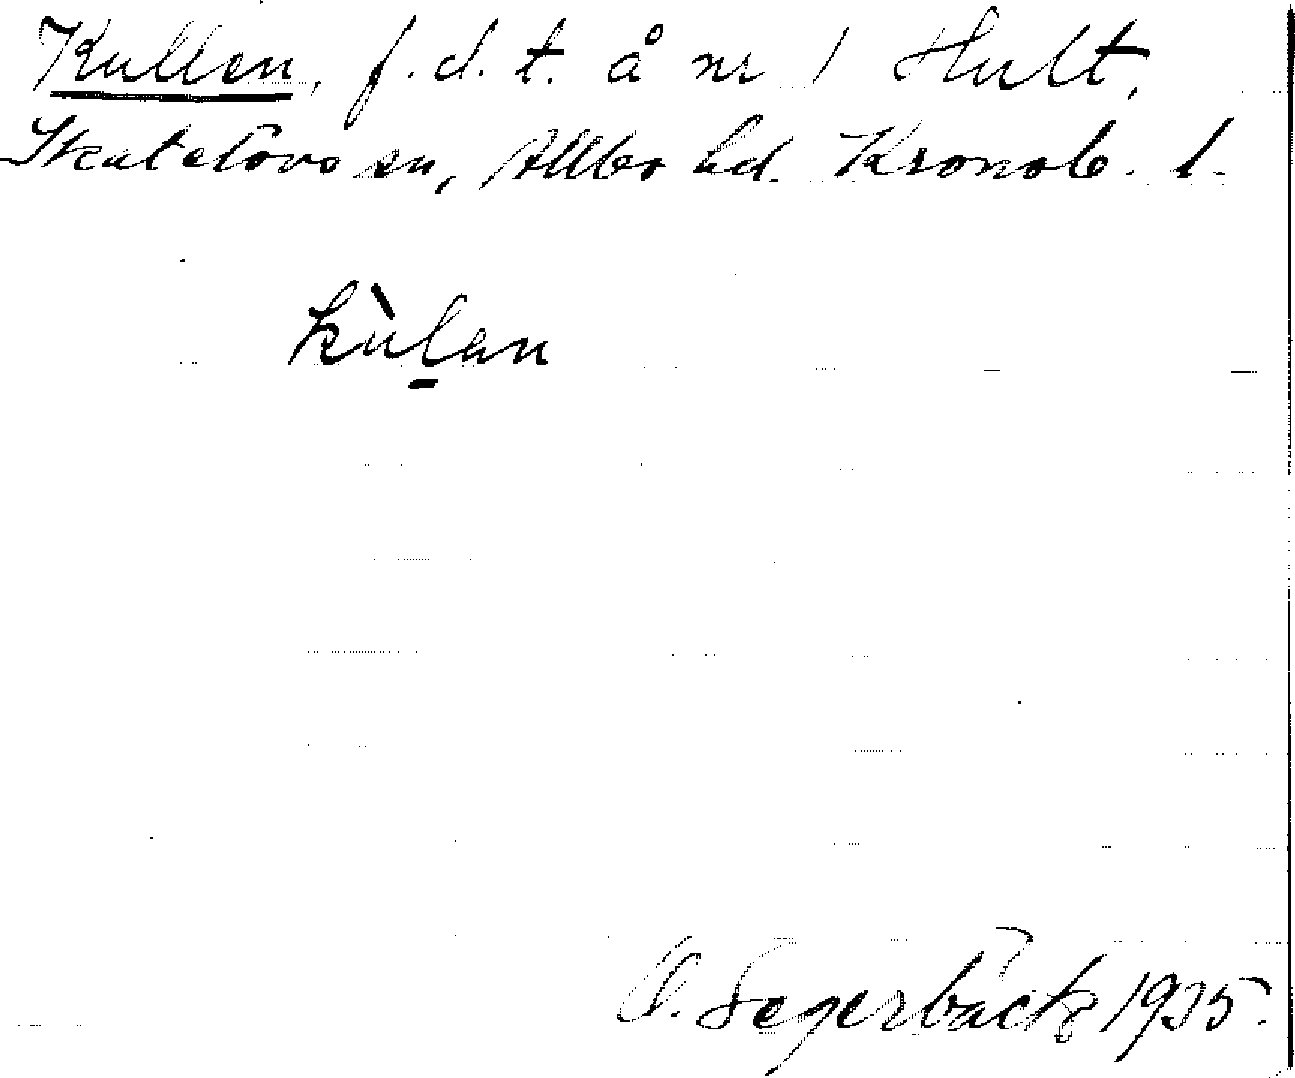 Kullen, f.d.t. å nr 1 Hult,
Skatelövs sn, Allbo hd. Kronob. l.
kùl̠an
O. Segerbäck 1935.